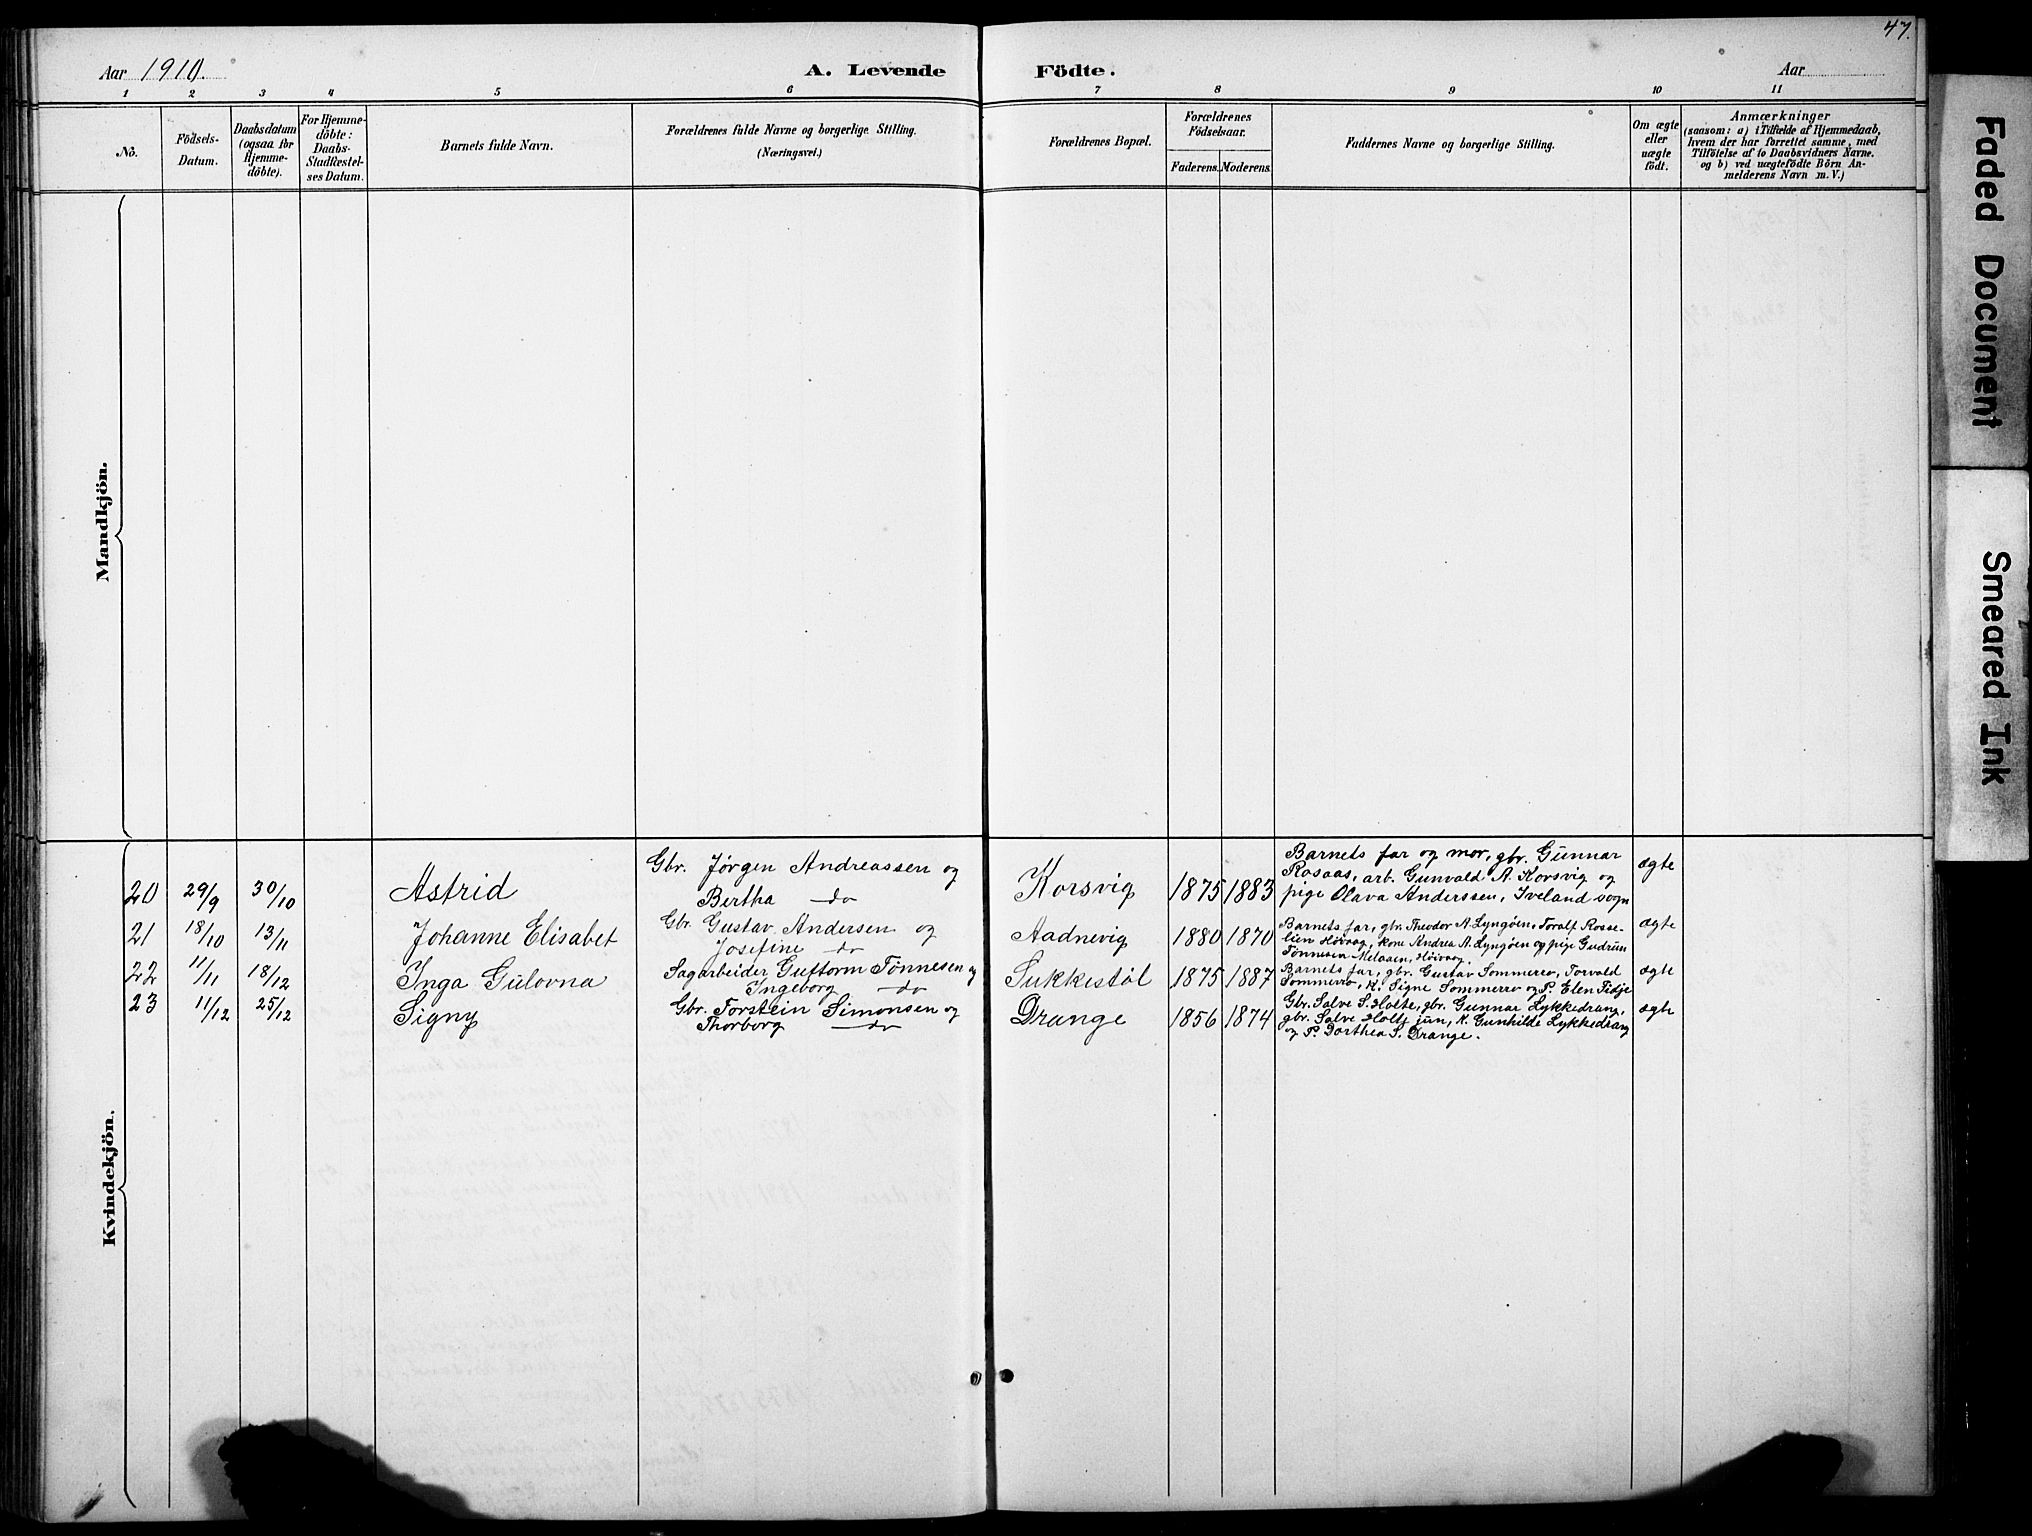 47.
Aar 1910.
A. Levende Födte.
Aar
1 2 3 4 5 6 7 8 8 9 10 11
No.
Födsels-
Datum.
Daabsdatum
(ogsaa for
Hjemme-
døbte).
For Hjemme-
döbte:
Daabs-
Stadfæstel-
ses Datum.
Barnets fulde Navn.
Forældrenes fulde Navne og borgerlige Stilling.
(Næringsvei.)
Forældrenes Bopæl.
Forældrenes
Födselsaar.
Faderens. Moderens.
Faddernes Navne og borgerlige Stilling.
Om ægte
eller
uægte
födt.
Anmærkninger
(saasom: a) i Tilfælde af Hjemmedaab,
hvem der har forrettet samme, med
Tilföielse af to Daabsvidners Navne.
og b) ved uægtefödte Börn An-
melderens Navn m. V.)
Mandkjön.
Kvindekjön.
20 29/9 30/10 Astrid
Gbr. Jørgen Andreassen og
Bertha do
Korsvig 1875 1883
Barnets far og mor, gbr. Gunnar
Rosaas, arb. Gunvald A. Korsvig og
pige Olava Anderssen, Iveland sogn
ægte
21 18/10 13/11 Johanne Elisabet
Gbr. Gustav Andersen og
Josefine do
Aadnevig 1880 1870
Barnets far, gbr. Theodor A. Lyngøen, Toralf Rosse-
lien Høivaag, kone Andrea A. Lyngøen og pige Gudrun
Tønnesen Melaaen, Høivaag.
ægte
22 11/11 18/12 Inga Gulovna
Sagarbeider Guttorm Tønnesen og
Ingeborg do
Sukkestøl 1875 1887
Barnets far, gbr. Gustav Sommerro, Torvald
Sommerro, K. Signe Sommerro og P. Elen Tidje
ægte
23 11/12 25/12 Signy
Gbr. Torstein Simonsen og
Thorborg do
Drange 1856 1874
Gbr. Salve S. Holte, gbr. Gunnar Lykkedrang,
gbr. Salve Holte jun, K. Gunhilde Lykkedrang
og P. Dorthea S. Drange.
ægte
Faded Document
Smeared Ink